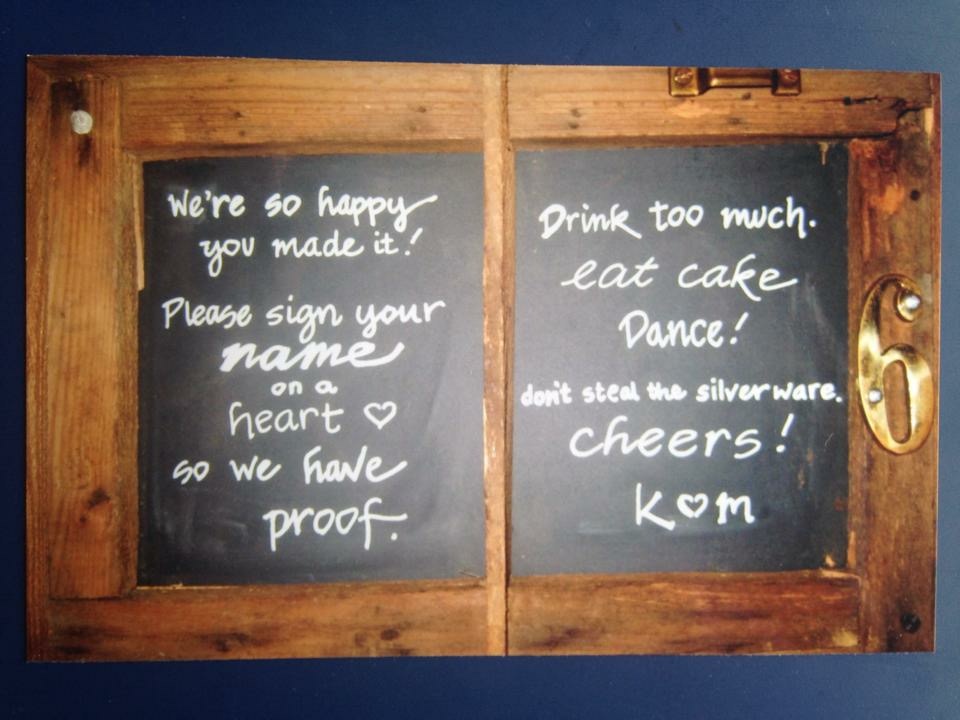 We're so happy
you made it!
Please sign your
name
on a
heart ♡
so we have
proof.
Drink too much.
eat cake
Dance!
don't steal the silverware.
cheers!
K♡m
6